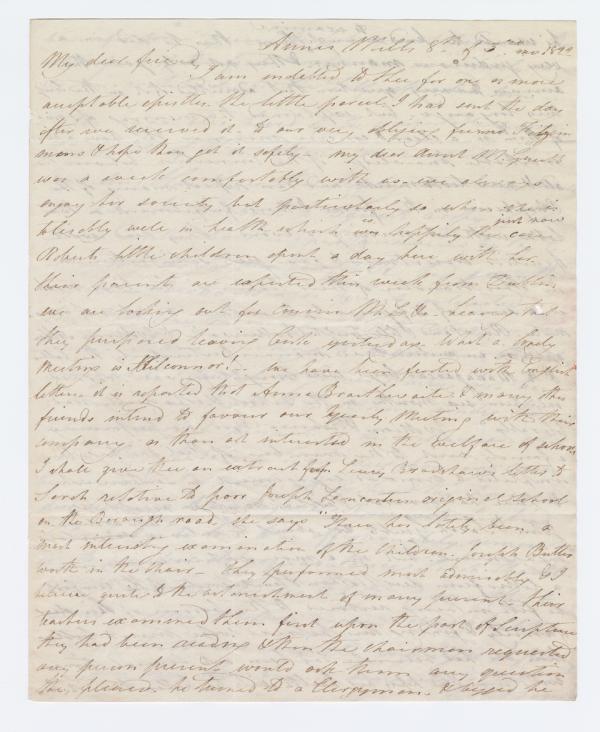 Annes Mills 8th of 5th mo 182
My dear friend
I am indebted to thee for one or more
acceptable epistles the little parcel I had sent the day
after we received it to our very obliging friend
& hope thou got it safely - my dear Aunt
was a week comfortably with us - we always
enjoy her society but particularly so when she is
tolerably well in health which is happily the case just now
Roberts little children spent a day here with her
their parents are expected this week from Dublin
we are looking out for
they purposed leaving yesterday. What a lovely
meeting is Kilconnor! - we have been feasted with English
letters it is reported that Anna Braithwaite & many other
friends intend to favour our Yearly Meeting with their
company. as thou art interested in the welfare of schools
I shall give thee an extract from Lucy Bradshaw's letter to
Sarah relative to poor Joseph Lancasters original School
on the Borough road, she says "There has lately been a
most interesting examination of the children. Joseph Butter
worth in the Chair - They performed most admirably & I
believe quite to the astonishment of many present. Their
teachers examined them first upon the part of Scripture
they had been reading & then the chairman requested
any person present would ask them any question
they pleased. he turned to a Clergyman & begged he